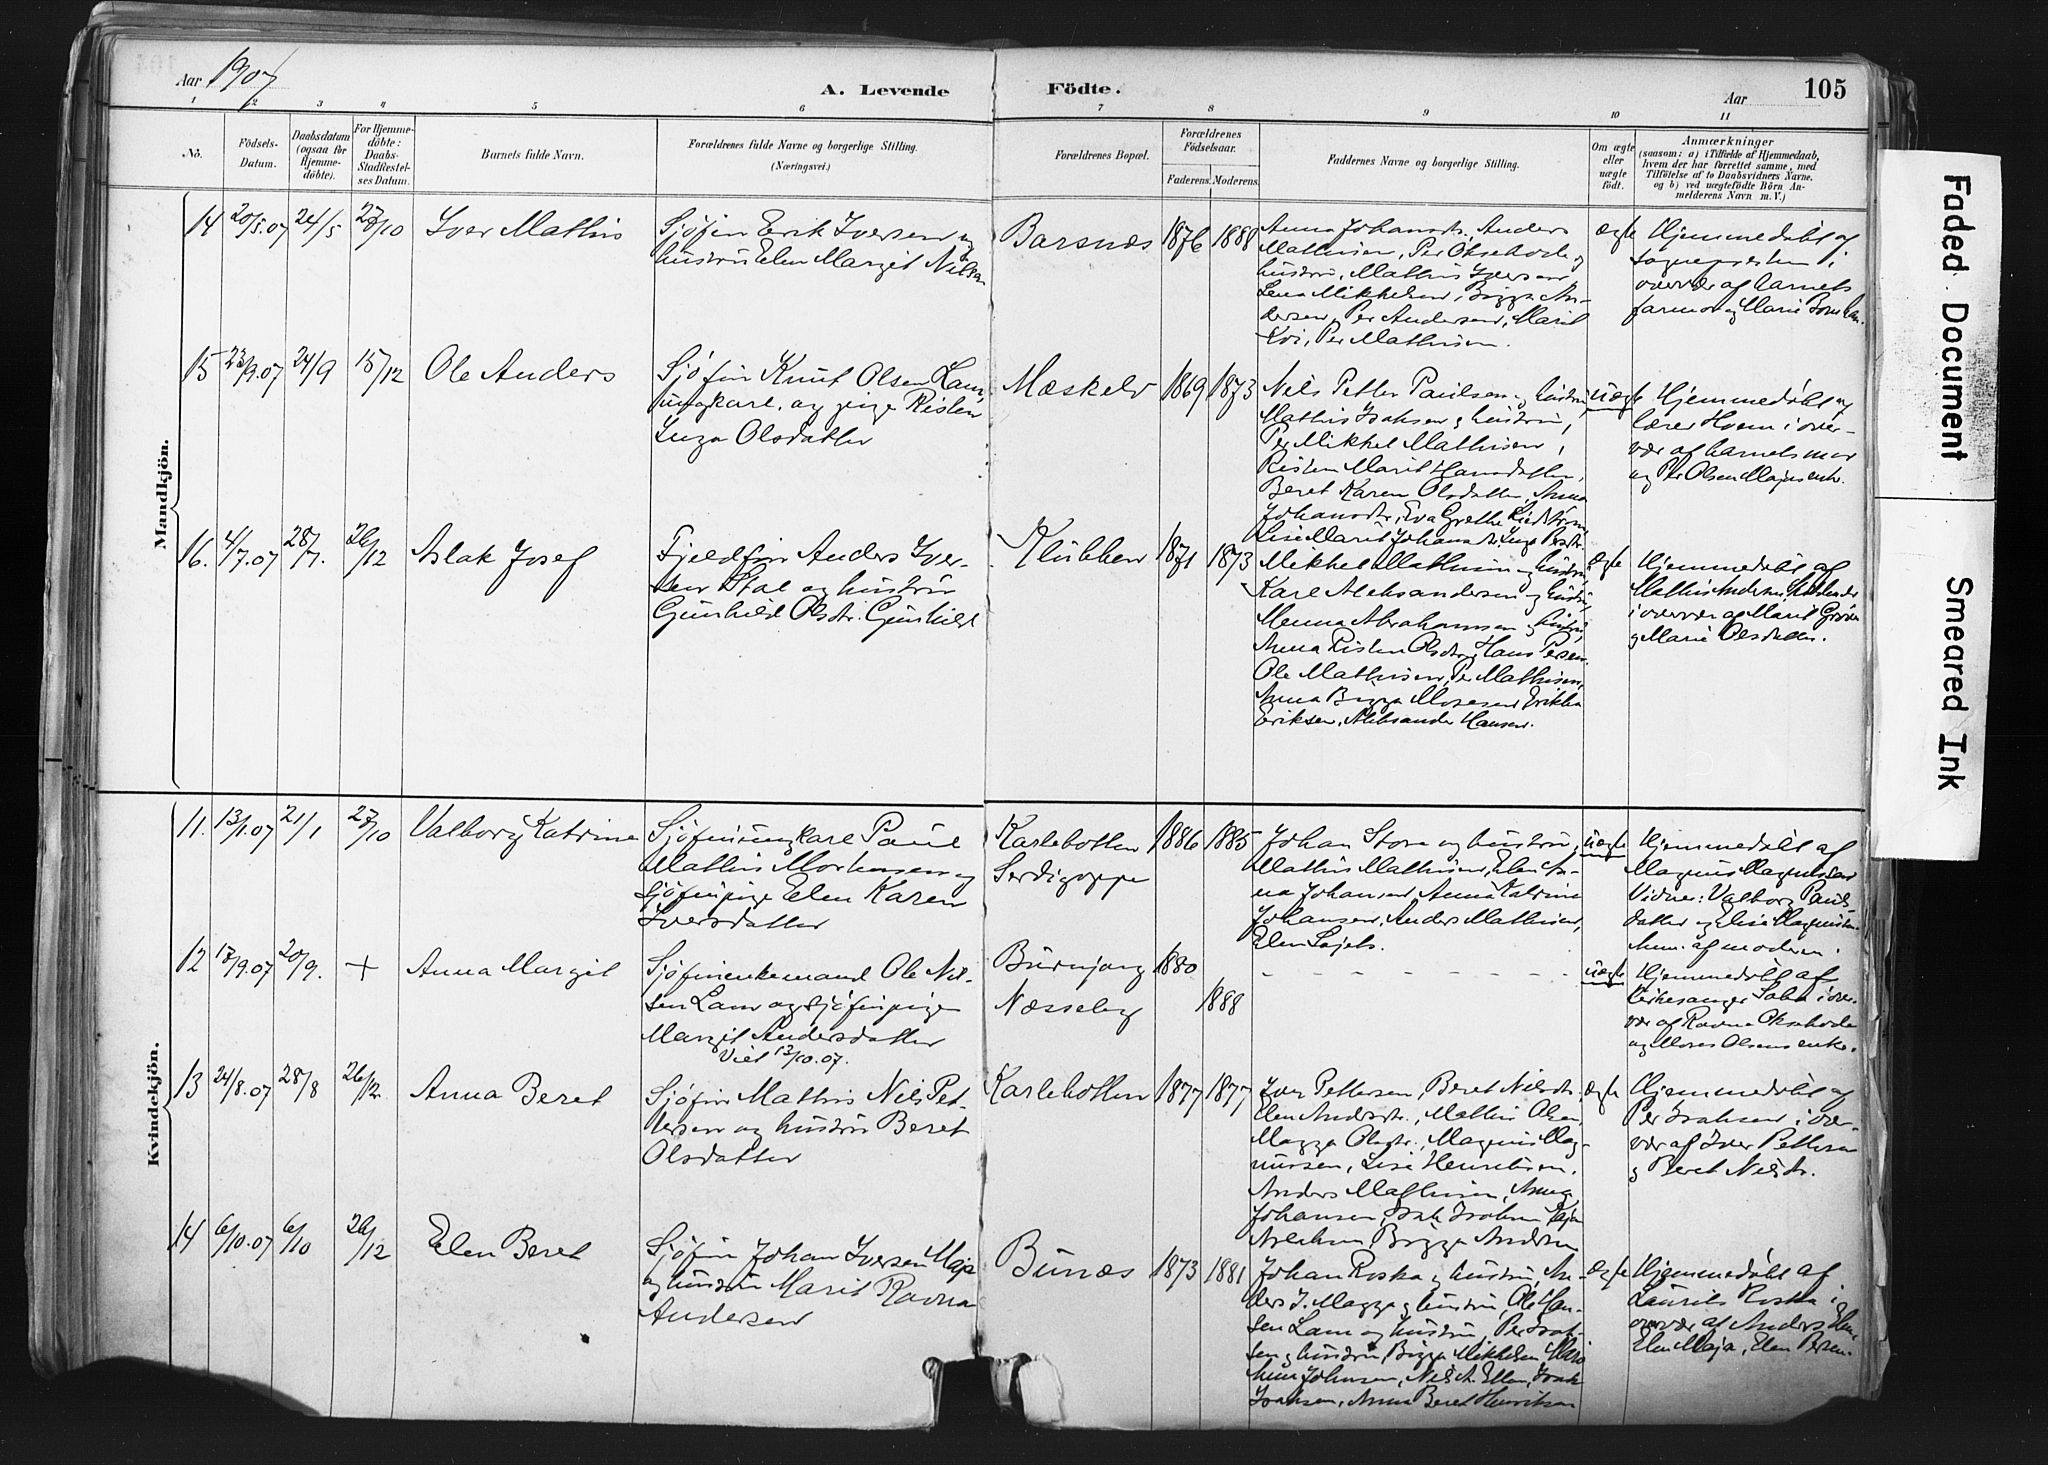 Aar 1907
A. Levende Födte.
Aar
105
1 2 3 4 5 6 7 8 9 10 11
No.
Födsels-
Datum.
Daabsdatum
(ogsaa for
Hjemme-
döbte).
For Hjemme-
döbte:
Daabs-
Stadfæstel-
ses Datum.
Barnets fulde Navn.
Forældrenes fulde Navne og borgerlige Stilling.
(Næringsvei.)
Forældrenes Bopæl.
Forældrenes
Födselsaar.
Faderens. Moderens.
Faddernes Navne og borgerlige Stilling.
Om ægte
eller
uægte
födt.
Anmærkninger
(saasom: a) i Tilfælde af Hjemmedaab,
hvem der har forrettet samme, med
Tilföielse af to Daabsvidners Navne,
og b) ved uægtefödte Börn An-
melderens Navn m. V.)
Mandkjön.
14 20/5.07 24/5 27/10 Iver Mathis
Sjöfin Erik Iversen og
hustru Elen Margit Nilsen
Barsnæs 1876 1888
Anna Johansdtr, Anders
Mathisen, Per Oksehode og
hustru, Mathis Iversen
Lena Mikkelsen, Bigga An-
dersen, Per Andersen, Marit
Per Mathisen.
ægte
Hjemmedöbt af
sognepresten i
overvær af barnets
farmor og Marie
15 23/9.07 24/9 15/12 Ole Anders
Sjöfin Knut Olsen Lam,
ungkarl, og pige Risten
Inga Olsdatter
Mæskelv 1869 1873
Nils Petter Paulsen og hustru
Mathis Isaksen og hustru,
Per Mikkel Mathisen,
Risten Marit Hansdatter,
Beret Karen Olsdatter, Anna
Johansdtr, Eva Grethe
Lise Marit Johansdtr, Inga
uægte
Hjemmedöbt af
lærer Hvem i over-
vær af barnets mor
og Per Olsen Majas enke.
16. 4/7.07 28/7. 26/12 Aslak Josef
Fjeldfin Anders Iver-
sen Stal og hustru
Gunhild Olsdtr. Gunhild
Klubben 1871 1873
Mikkel Mathisen og hustru,
Karl Aleksandersen og hustru,
Menna Abrahamsen og hustru,
Anna Risten Olsdtr, Hans Persen
Ole Mathisen, Per Mathisen,
Anna Bigga Mosesen, Erikka
Eriksen, Aleksander Hansen.
ægte
Hjemmedöbt af
Mathis Andersen
i overvær af Marit
og Marie Olsdatter.
Kvindekjön.
11. 13/1.07 21/1 27/10 Valborg Katrine
Sjöfinungkarl Paul
Mathis Mortensen og
Sjöfinpige Elen Karen
Iversdatter
Karlebotten
Serdigoppe
1886 1885
Johan Store og hustru,
Mathis Mathisen, Elen An-
na Johansen, Anna Katrine
Johansen, Anders Mathisen,
Elen Sajets.
uægte
Hjemmedöbt af
Magnus Magnussen
Vidner: Valborg Pauls-
datter og Elise Magnussen
Anm. af moderen.
12 17/9.07 20/9. + Anna Margit
Sjöfinenkemand Ole Nil-
sen Lam og sjöfinpige
Margit Andersdatter
Viet 13/10.07.
Burnjarg 1880
Næsseby 1888
- - - - - - - - -
uægte
Hjemmedöbt af
Kirkesanger Saba i over-
vær af Ravna Oksehode
og Moses Olsens enke.
13 24/8.07 28/8 26/12. Anna Beret
Sjöfin Mathis Nils Pet-
tersen og hustru Beret
Olsdatter
Karlebotten 1877 1877
Iver Pettersen, Beret Nilsdtr.
Elen Andersdtr., Mathis Olsen,
Magga Olsdtr., Magnus Mag-
nussen, Lise Henriksen,
Anders Mathisen, Anna
Johansen, Isak Isaksen, Kaja
Bigga Andersen
ægte
Hjemmedöbt af
Per Isaksen i over-
vær af Iver Pettersen
og Beret Nilsdtr.
14 6/10.07 6/10 26/12 Elen Beret
Sjöfin Johan Iversen Maja
og hustru Marit Ravna
Andersen
Bunæs 1873 1881
Johan Roska og hustru, An-
ders J. Magga og hustru, Ole Han-
sen Lam og hustru, Per Isak-
sen og hustru, Bigga Mikkelsen,
Johnsen, Nils A. Ellen, Isak
Isaksen, Anna Beret Henriksen
ægte
Hjemmedöbt af
Laurits Roska i
overvær af Anders
Elen Maja, Elen Persen.
Faded Document
Smeared Ink